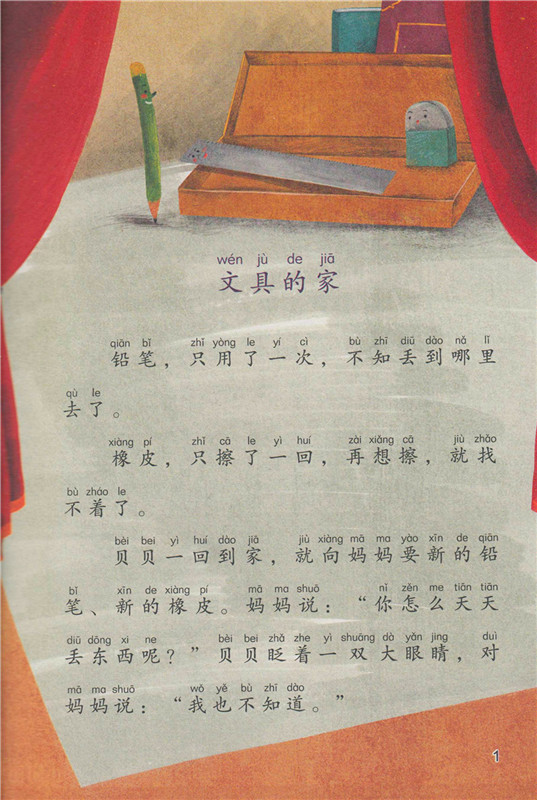 wén jù de jiā
文具的家
qiān bǐ zhǐ yòng le yí cì bù zhī diū dào nǎ lǐ
铅笔，只用了一次，不知丢到哪里
qù le
去了。
xiàng pí zhǐ cā le yì huí zài xiǎng cā jiù zhǎo
橡皮，只擦了一回，再想擦，就找
bù zháo le
不着了。
bèi bei yì huí dào jiā jiù xiàng mā ma yào xīn de qiān
贝贝一回到家，就向妈妈要新的铅
bǐ xīn de xiàng pí mā ma shuō nǐ zěn me tiān tiān
笔、新的橡皮。妈妈说：“你怎么天天
diū dōng xi ne bèi bei zhǎ zhe yì shuāng dà yǎn jing duì
丢东西呢？”贝贝眨着一双大眼睛，对
mā ma shuō wǒ yě bù zhī dào
妈妈说：“我也不知道。”
1